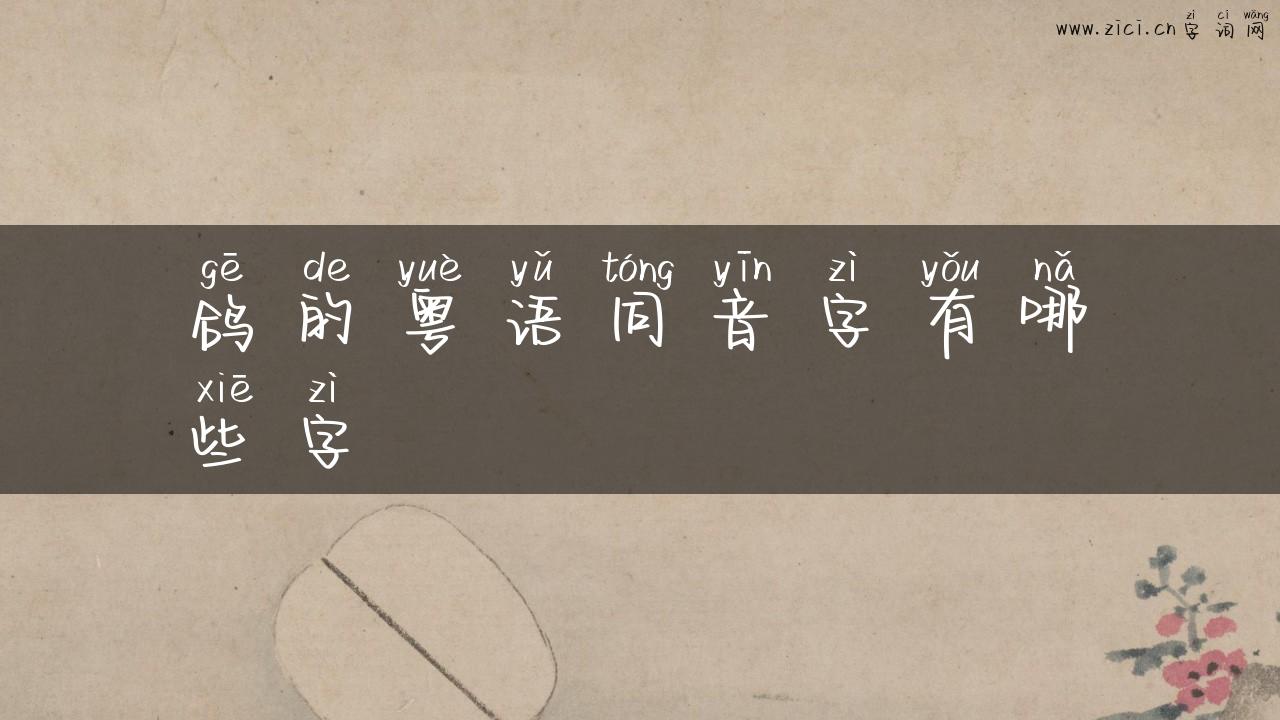 zì cí wǎng
www.zici.cn字词网
gē de yuè yǔ tóng yīn zì yǒu nǎ
鸽的粤语同音字有哪
xiē zì
些字